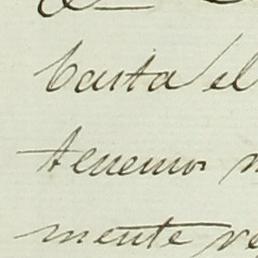 basta el
tenemos
mente